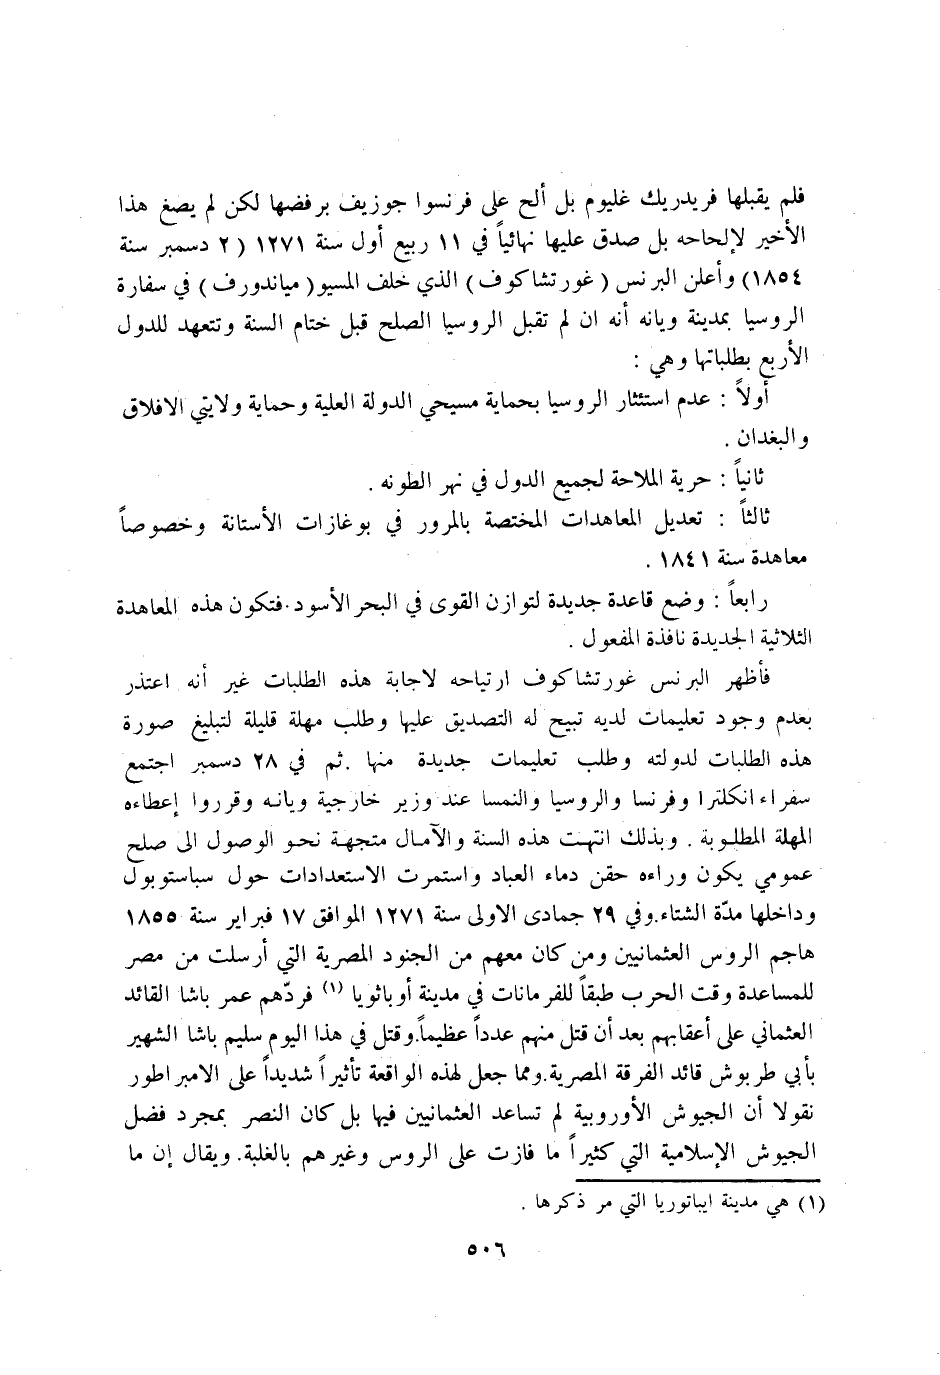 فلم يقبلها فريدريك غليوم بل ألح على فرنسوا جوزيف برفضها لكن لم يصغ هذا
الأخير لإلحاحه بل صدق عليها نهائياً في ١١ ربيع أول سنة ١٢٧١ ( ٢ دسمبر سنة
١٨٥٤) وأعلن البرنس ( غورتشاكوف ) الذي خلف المسيو ( مياندورف ) في سفارة
الروسيا بمدينة ويانه أنه ان لم تقبل الروسيا الصلح قبل ختام السنة وتتعهد للدول
الأربع بطلباتها وهي :
أولاً : عدم استئثار الروسيا بحماية مسيحي الدولة العلية وحماية ولايتي الافلاق
والبغدان .
ثانياً : حرية الملاحة لجميع الدول في نهر الطونه .
ثالثاً : تعديل المعاهدات المختصة بالمرور في بوغازات الأستانة وخصوصاً
معاهدة سنة ١٨٤١ .
رابعاً : وضع قاعدة جديدة لتوازن القوى في البحر الأسود.فتكون هذه المعاهدة
الثلاثية الجديدة نافذة المفعول .
فأظهر البرنس غورتشاكوف ارتياحه لاجابة هذه الطلبات غير أنه اعتذر
بعدم وجود تعليمات لديه تبيح له التصديق عليها وطلب مهلة قليلة لتبليغ صورة
هذه الطلبات لدولته وطلب تعليمات جديدة منها .ثم في ٢٨ دسمبر اجتمع
سفراء انكلترا وفرنسا والروسيا والنمسا عند وزير خارجية ويانه وقرروا إعطاءه
المهلة المطلوبة . وبذلك انتهت هذه السنة والآمال متجهة نحو الوصول الى صلح
عمومي يكون وراءه حقن دماء العباد واستمرت الاستعدادات حول سباستوبول
وداخلها مدّة الشتاء.وفي ٢٩ جمادى الاولى سنة ١٢٧١ الموافق ١٧ فبراير سنة ١٨٥٥
هاجم الروس العثمانيين ومن كان معهم من الجنود المصرية التي أرسلت من مصر
للمساعدة وقت الحرب طبقاً للفرمانات في مدينة أوباثويا (١) فردّهم عمر باشا القائد
العثماني على أعقابهم بعد أن قتل منهم عدداً عظيماً.وقتل في هذا اليوم سليم باشا الشهير
بأبي طربوش قائد الفرقة المصرية.ومما جعل لهذه الواقعة تأثيراً شديداً على الامبراطور
نقولا أن الجيوش الأوروبية لم تساعد العثمانيين فيها بل كان النصر بمجرد فضل
الجيوش الإسلامية التي كثيراً ما فازت على الروس وغيرهم بالغلبة. ويقال إن ما
(١) هي مدينة ايباتوريا التي مر ذكرها .
٥٠٦